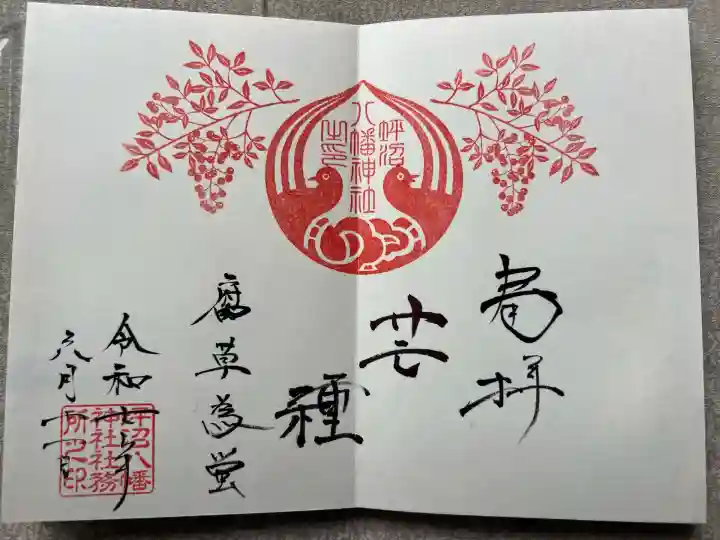 拝
坪沼
八幡神社
之印
芒種
腐草為螢
令和七年
六月十一日
坪沼八幡
神社社務
所之印